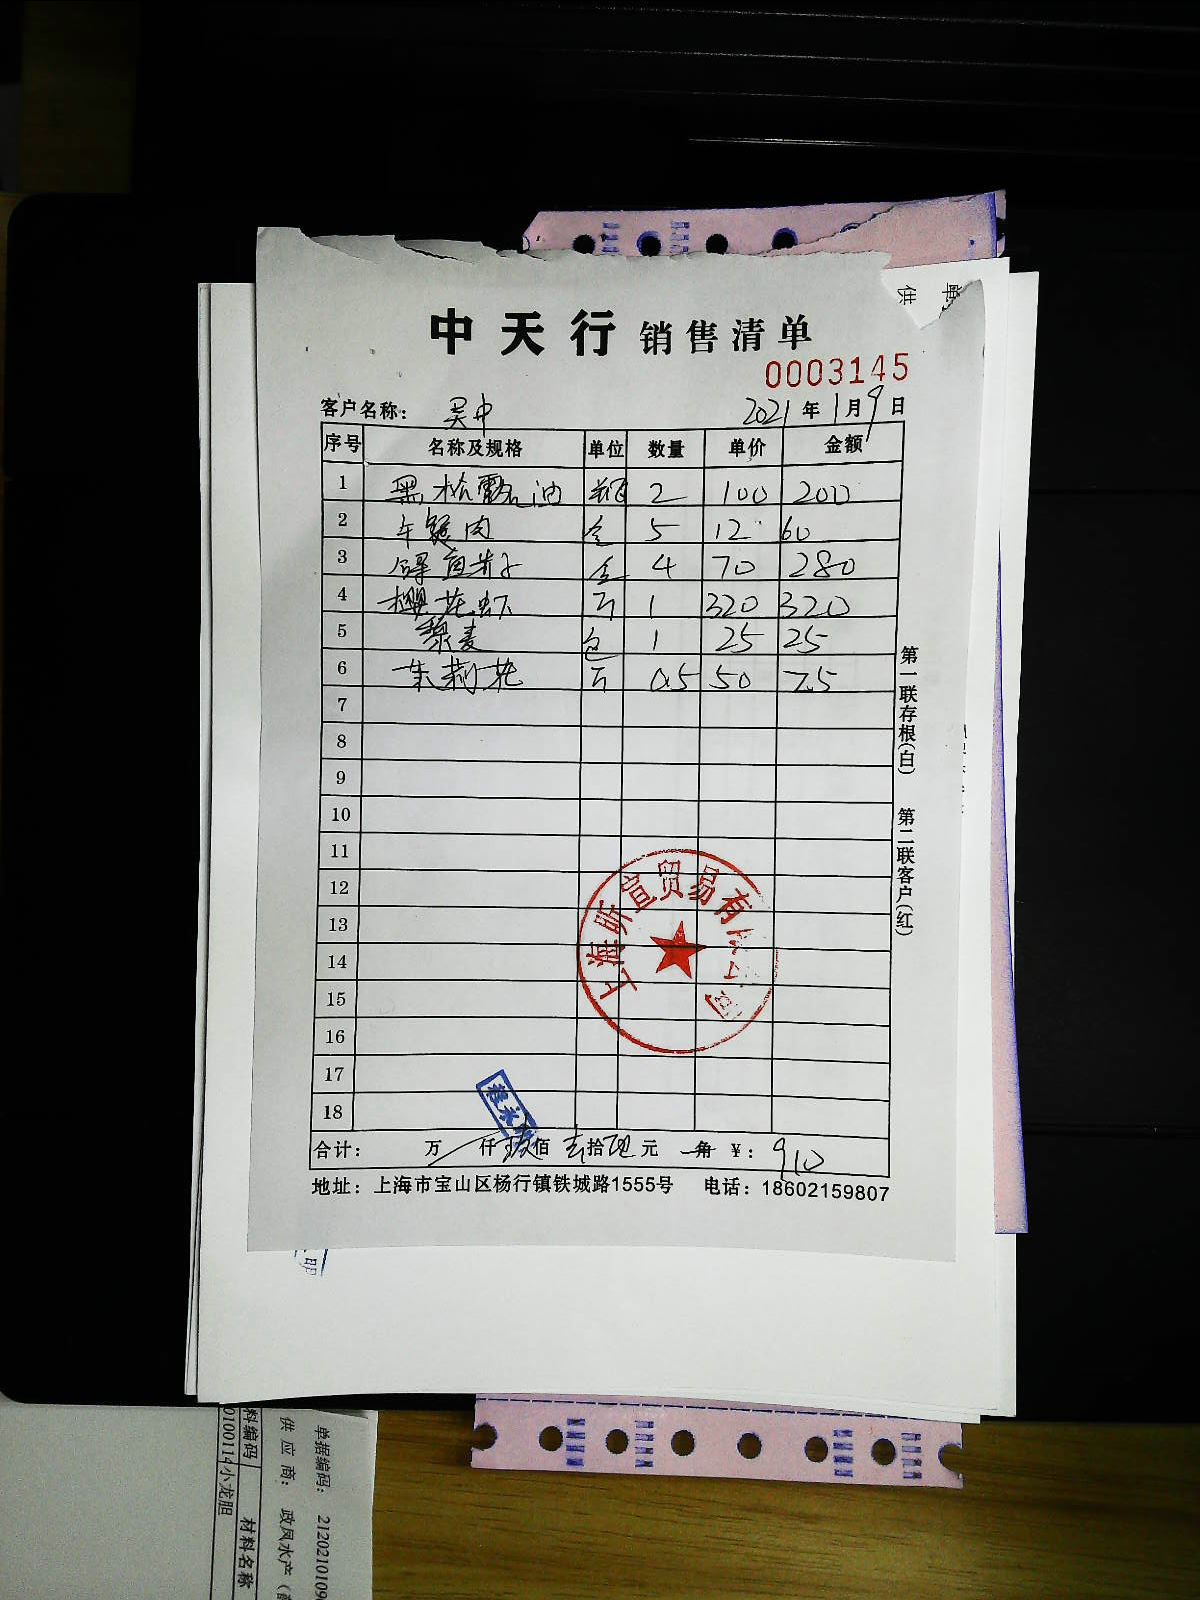 中天行 销售清单
0003145
客户名称： 吴中 2021年1月9日
序号 名称及规格 单位 数量 单价 金额
1 黑松露油 瓶 2 100 200
2 午餐肉 盒 5 12 60
3 盒 4 70 280
4 樱花虾 斤 1 320 320
5 藜麦 包 1 25 25
6 茉莉花 斤 0.5 50 25
7
8
9
10
11
12
13
14
15
16
17
18
上海昕宣贸易有限公司
合计： 万 仟 玖佰 壹拾 元 角 ¥：910
地址：上海市宝山区杨行镇铁城路1555号 电话：18602159807
第一联存根(白) 第二联客户(红)
供
单据编码： 2120210109
供应商： 政风水产
料编码 材料名称
0100114 小龙胆